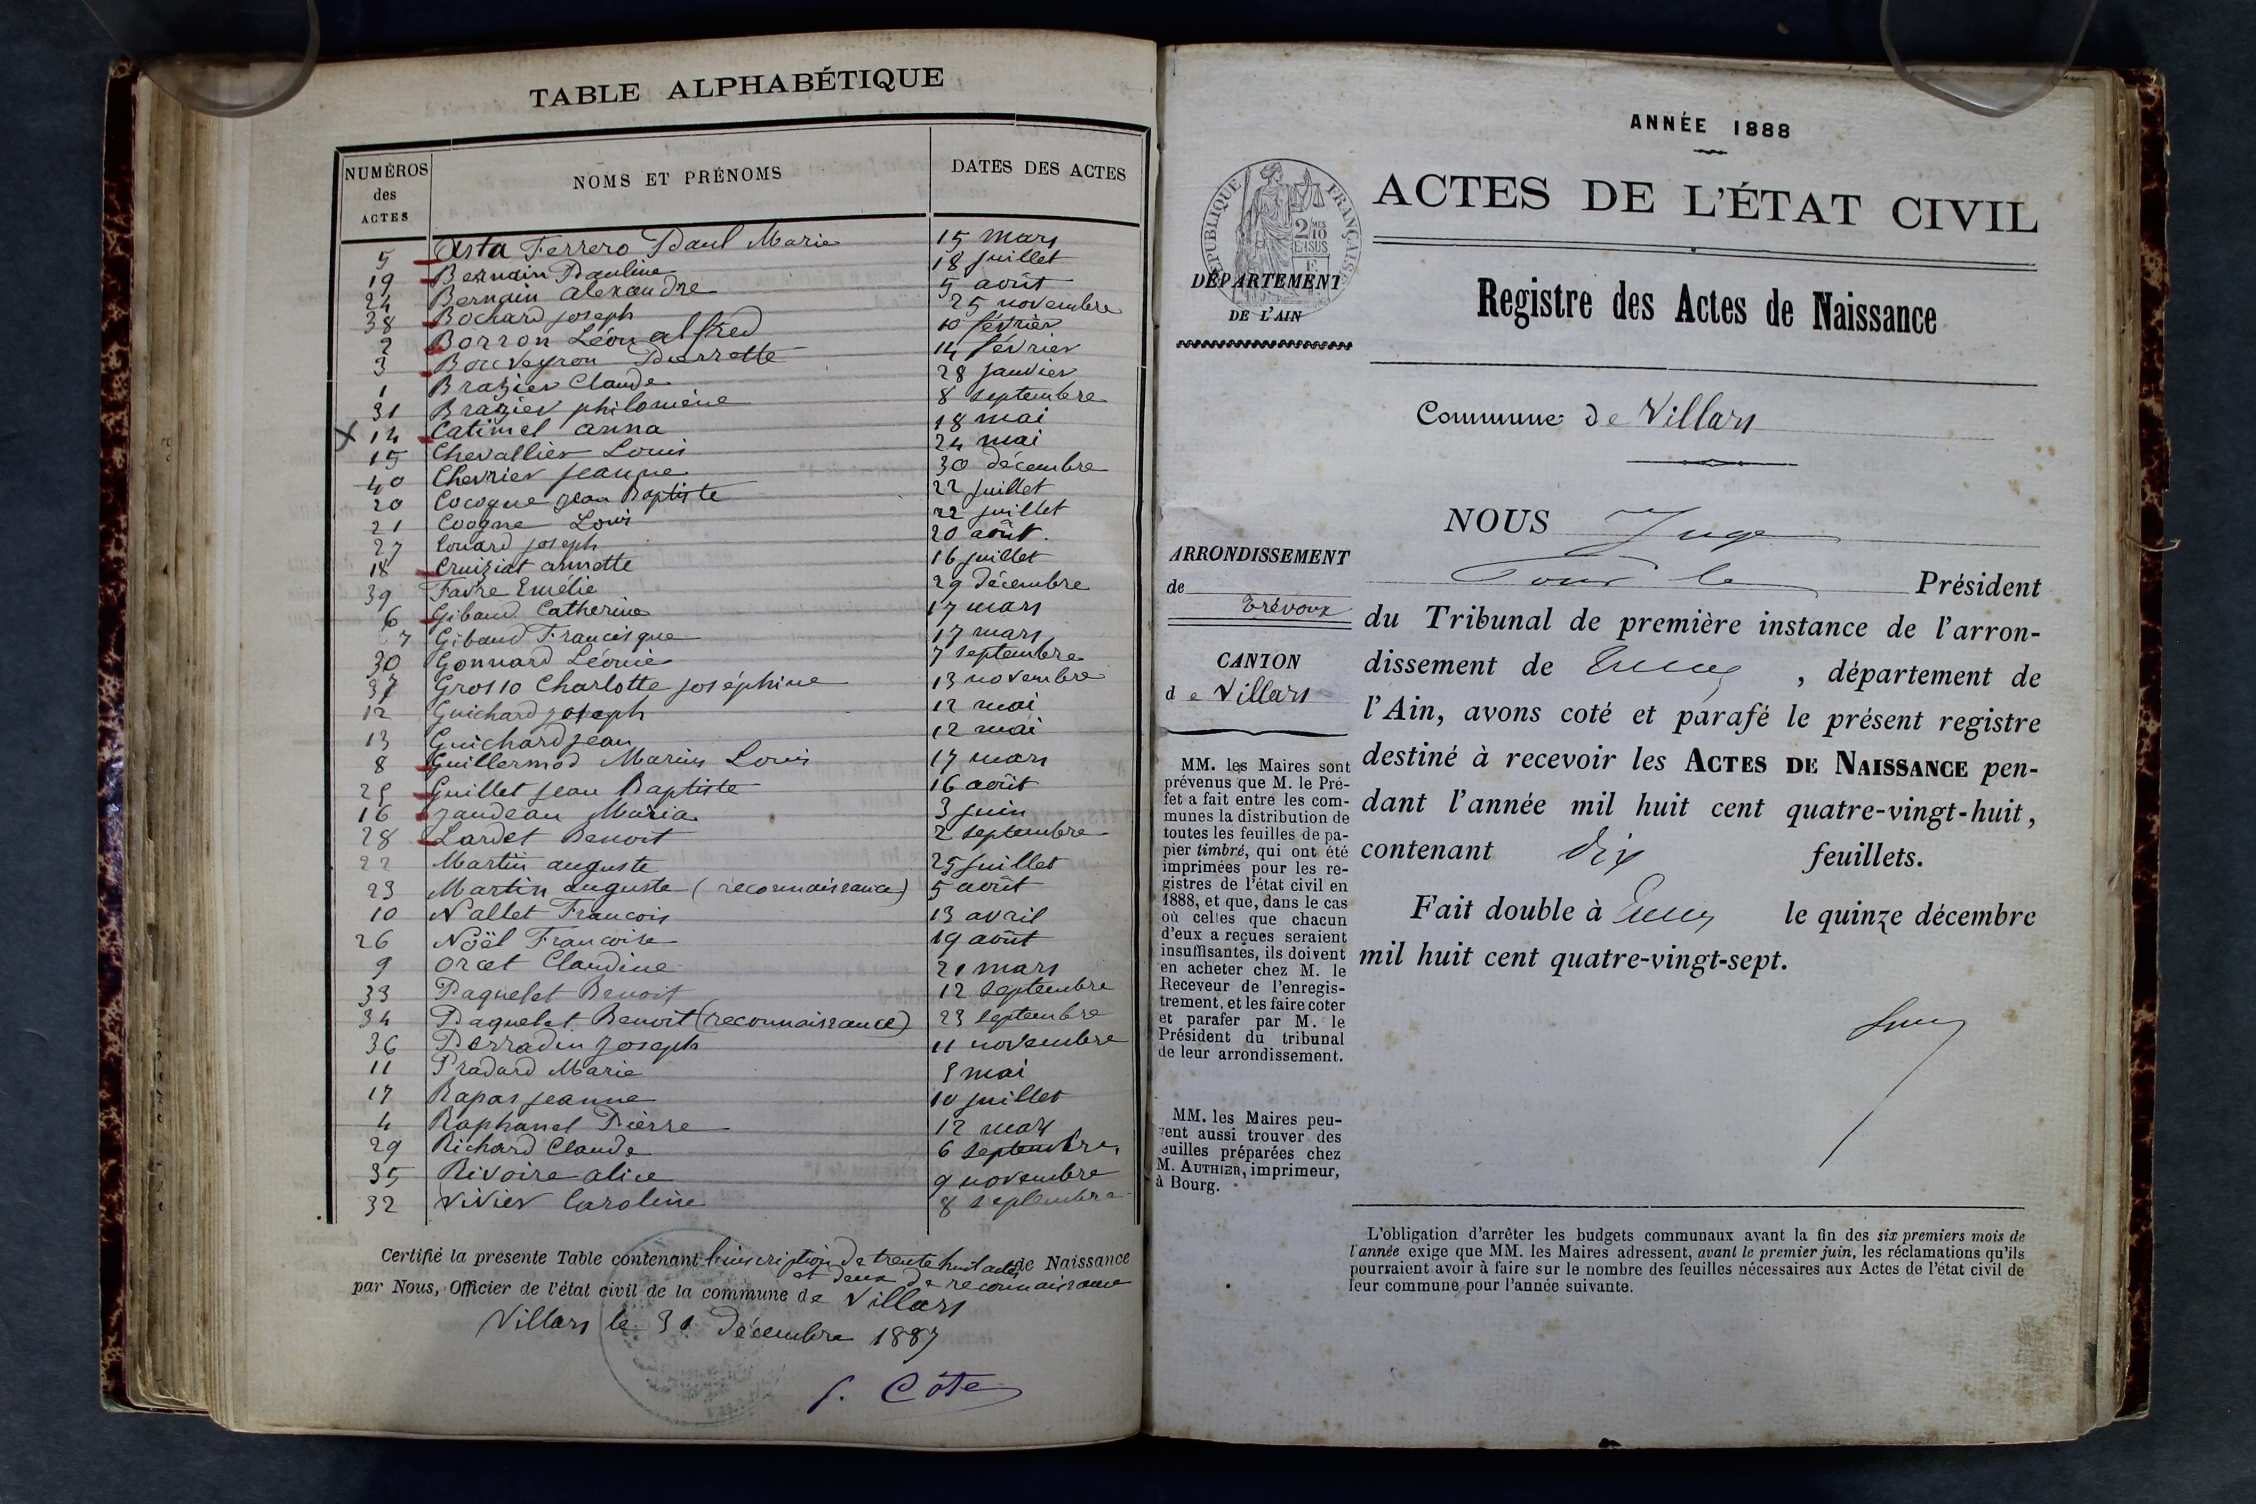 TABLE ALPHABÉTIQUE
NUMÉROS des ACTES NOMS ET PRÉNOMS DATES DES ACTES
5 Asta Ferrero Paul Marie 15 mars
19 Bernain Pauline 18 juillet
24 Bernain alexandre 5 août
38 Bochard joseph 25 novembre
2 Borron Léon alfred 10 février
3 Bouveyron Pierrette 14 février
1 Brazier Claude 28 janvier
31 Brazier philomène 8 septembre
X 14 Catimel anna 18 mai
15 Chevallier Louis 24 mai
40 Chevrier jeanne 30 décembre
20 Cocogne jean Baptiste 22 juillet
21 Cocogne Louis 22 juillet
27 Couard joseph 20 août.
18 Cruiziat annette 16 juillet
39 Favre Emélie 29 décembre
6 Gibaud Catherine 17 mars
7 Gibaud Francisque 17 mars
30 Gonnard Léonie 7 septembre
37 Grosso Charlotte joséphine 13 novembre
12 Guichard joseph 12 mai
13 Guichard jean 12 mai
8 Guillermod Marius Louis 17 mars
25 Guillet jean Baptiste 16 août
16 jandeau Maria 3 juin
28 Lardet Benoit 2 septembre
22 Martin auguste 25 juillet
23 Martin auguste (reconnaissance) 5 août
10 Nallet François 13 avril
26 Noël Françoise 19 août
9 orcet Claudine 21 mars
33 Paquelet Benoit 12 septembre
34 Paquelet Benoit (reconnaissance) 23 septembre
36 Perradin joseph 11 novembre
11 Pradard Marie mai
17 Rapas jeanne 10 juillet
4 Raphanel Pierre 12 mars
29 Richard Claude 6 septembre.
35 Rivoire alice 9 novembre
32 Vivier Caroline 8 septembre
Certifié la présente Table contenant l'inscription de trente huit actes de Naissance
et deux de reconnaissance
par Nous, Officier de l'état civil de la commune de Villars
Villars le 31 Décembre 1887
Côte
ANNÉE 1888
ACTES DE L'ÉTAT CIVIL
RÉPUBLIQUE FRANÇAISE
2/10 EN SUS
DÉPARTEMENT
DE L'AIN
Registre des Actes de Naissance
Commune de Villars
ARRONDISSEMENT
de Trévoux
CANTON
de Villars
MM. les Maires sont
prévenus que M. le Pré-
fet a fait entre les com-
munes la distribution de
toutes les feuilles de pa-
pier timbré, qui ont été
imprimées pour les re-
gistres de l'état civil en
1888, et que, dans le cas
où celles que chacun
d'eux a reçues seraient
insuffisantes, ils doivent
en acheter chez M. le
Receveur de l'enregis-
trement, et les faire coter
et parafer par M. le
Président du tribunal
de leur arrondissement.
MM. les Maires peu-
vent aussi trouver des
feuilles préparées chez
M. AUTHIER, imprimeur,
à Bourg.
NOUS Juge
Pour le Président
du Tribunal de première instance de l'arron-
dissement de , département de
l'Ain, avons coté et parafé le présent registre
destiné à recevoir les ACTES DE NAISSANCE pen-
dant l'année mil huit cent quatre-vingt-huit,
contenant dix feuillets.
Fait double à le quinze décembre
mil huit cent quatre-vingt-sept.
L'obligation d'arrêter les budgets communaux avant la fin des six premiers mois de
l'année exige que MM. les Maires adressent, avant le premier juin, les réclamations qu'ils
pourraient avoir à faire sur le nombre des feuilles nécessaires aux Actes de l'état civil de
leur commune pour l'année suivante.